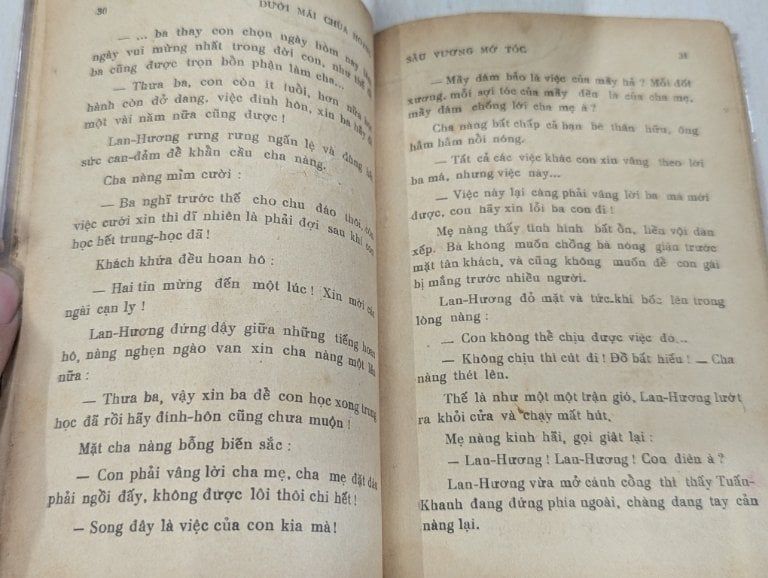 30 DƯỚI MÁI CHÙA HOANG
— ... ba thay con chọn ngày hôm nay làm
ngày vui mừng nhất trong đời con, như thế
ba cũng được trọn bồn phận làm cha...
— Thưa ba, con còn ít tuổi, hơn nữa học
hành còn dở dang, việc đính hôn, xin ba hãy
một vài năm nữa cũng được !
Lan-Hương rưng rưng ngấn lệ và dùng
sức can-đảm đề khẩn cầu cha nàng.
Cha nàng mỉm cười :
— Ba nghĩ trước thế cho chu đáo thôi,
việc cưới xin thì dĩ nhiên là phải đợi sau khi con
học hết trung-học đã !
Khách khứa đều hoan hô :
— Hai tin mừng đến một lúc ! Xin mời các
ngài cạn ly !
Lan-Hương đứng dậy giữa những tiếng hoan
hô, nàng nghẹn ngào van xin cha nàng một lần
nữa :
— Thưa ba, vậy xin ba đề con học xong trung
học đã rồi hãy đính-hôn cũng chưa muộn !
Mặt cha nàng bỗng biến sắc :
— Con phải vâng lời cha mẹ, cha mẹ đặt đâu
phải ngồi đấy, không được lôi thôi chi hết !
— Song đây là việc của con kia mà !
SẦU VƯƠNG MỚ TÓC 31
— Mầy dám bảo là việc của mầy hả ? Mỗi đốt
xương, mỗi sợi tóc của mầy đều là của cha mẹ,
mầy dám chống lời cha mẹ à ?
Cha nàng bất chấp cả bạn bè thân hữu, ông
hầm hầm nổi nóng.
— Tất cả các việc khác con xin vâng theo lời
ba má, nhưng việc này...
— Việc này lại càng phải vâng lời ba má mới
được, con hãy xin lỗi ba con đi !
Mẹ nàng thấy tình hình bất ổn, liền vội dàn
xếp. Bà không muốn chồng bà nóng giận trước
mặt tân khách, và cũng không muốn đề con gái
bị mắng trước nhiều người.
Lan-Hương đỏ mặt và tức-khí bốc lên trong
lòng nàng :
— Con không thể chịu được việc đó...
— Không chịu thì cút đi ! Đồ bất hiếu ! — Cha
nàng thét lên.
Thế là như một một trận gió, Lan-Hương lướt
ra khỏi cửa và chạy mất hút.
Mẹ nàng kinh hãi, gọi giật lại :
— Lan-Hương ! Lan-Hương ! Con điên à ?
Lan-Hương vừa mở cánh cổng thì thấy Tuấn-
Khanh đang đứng phía ngoài, chàng dang tay cản
nàng lại.